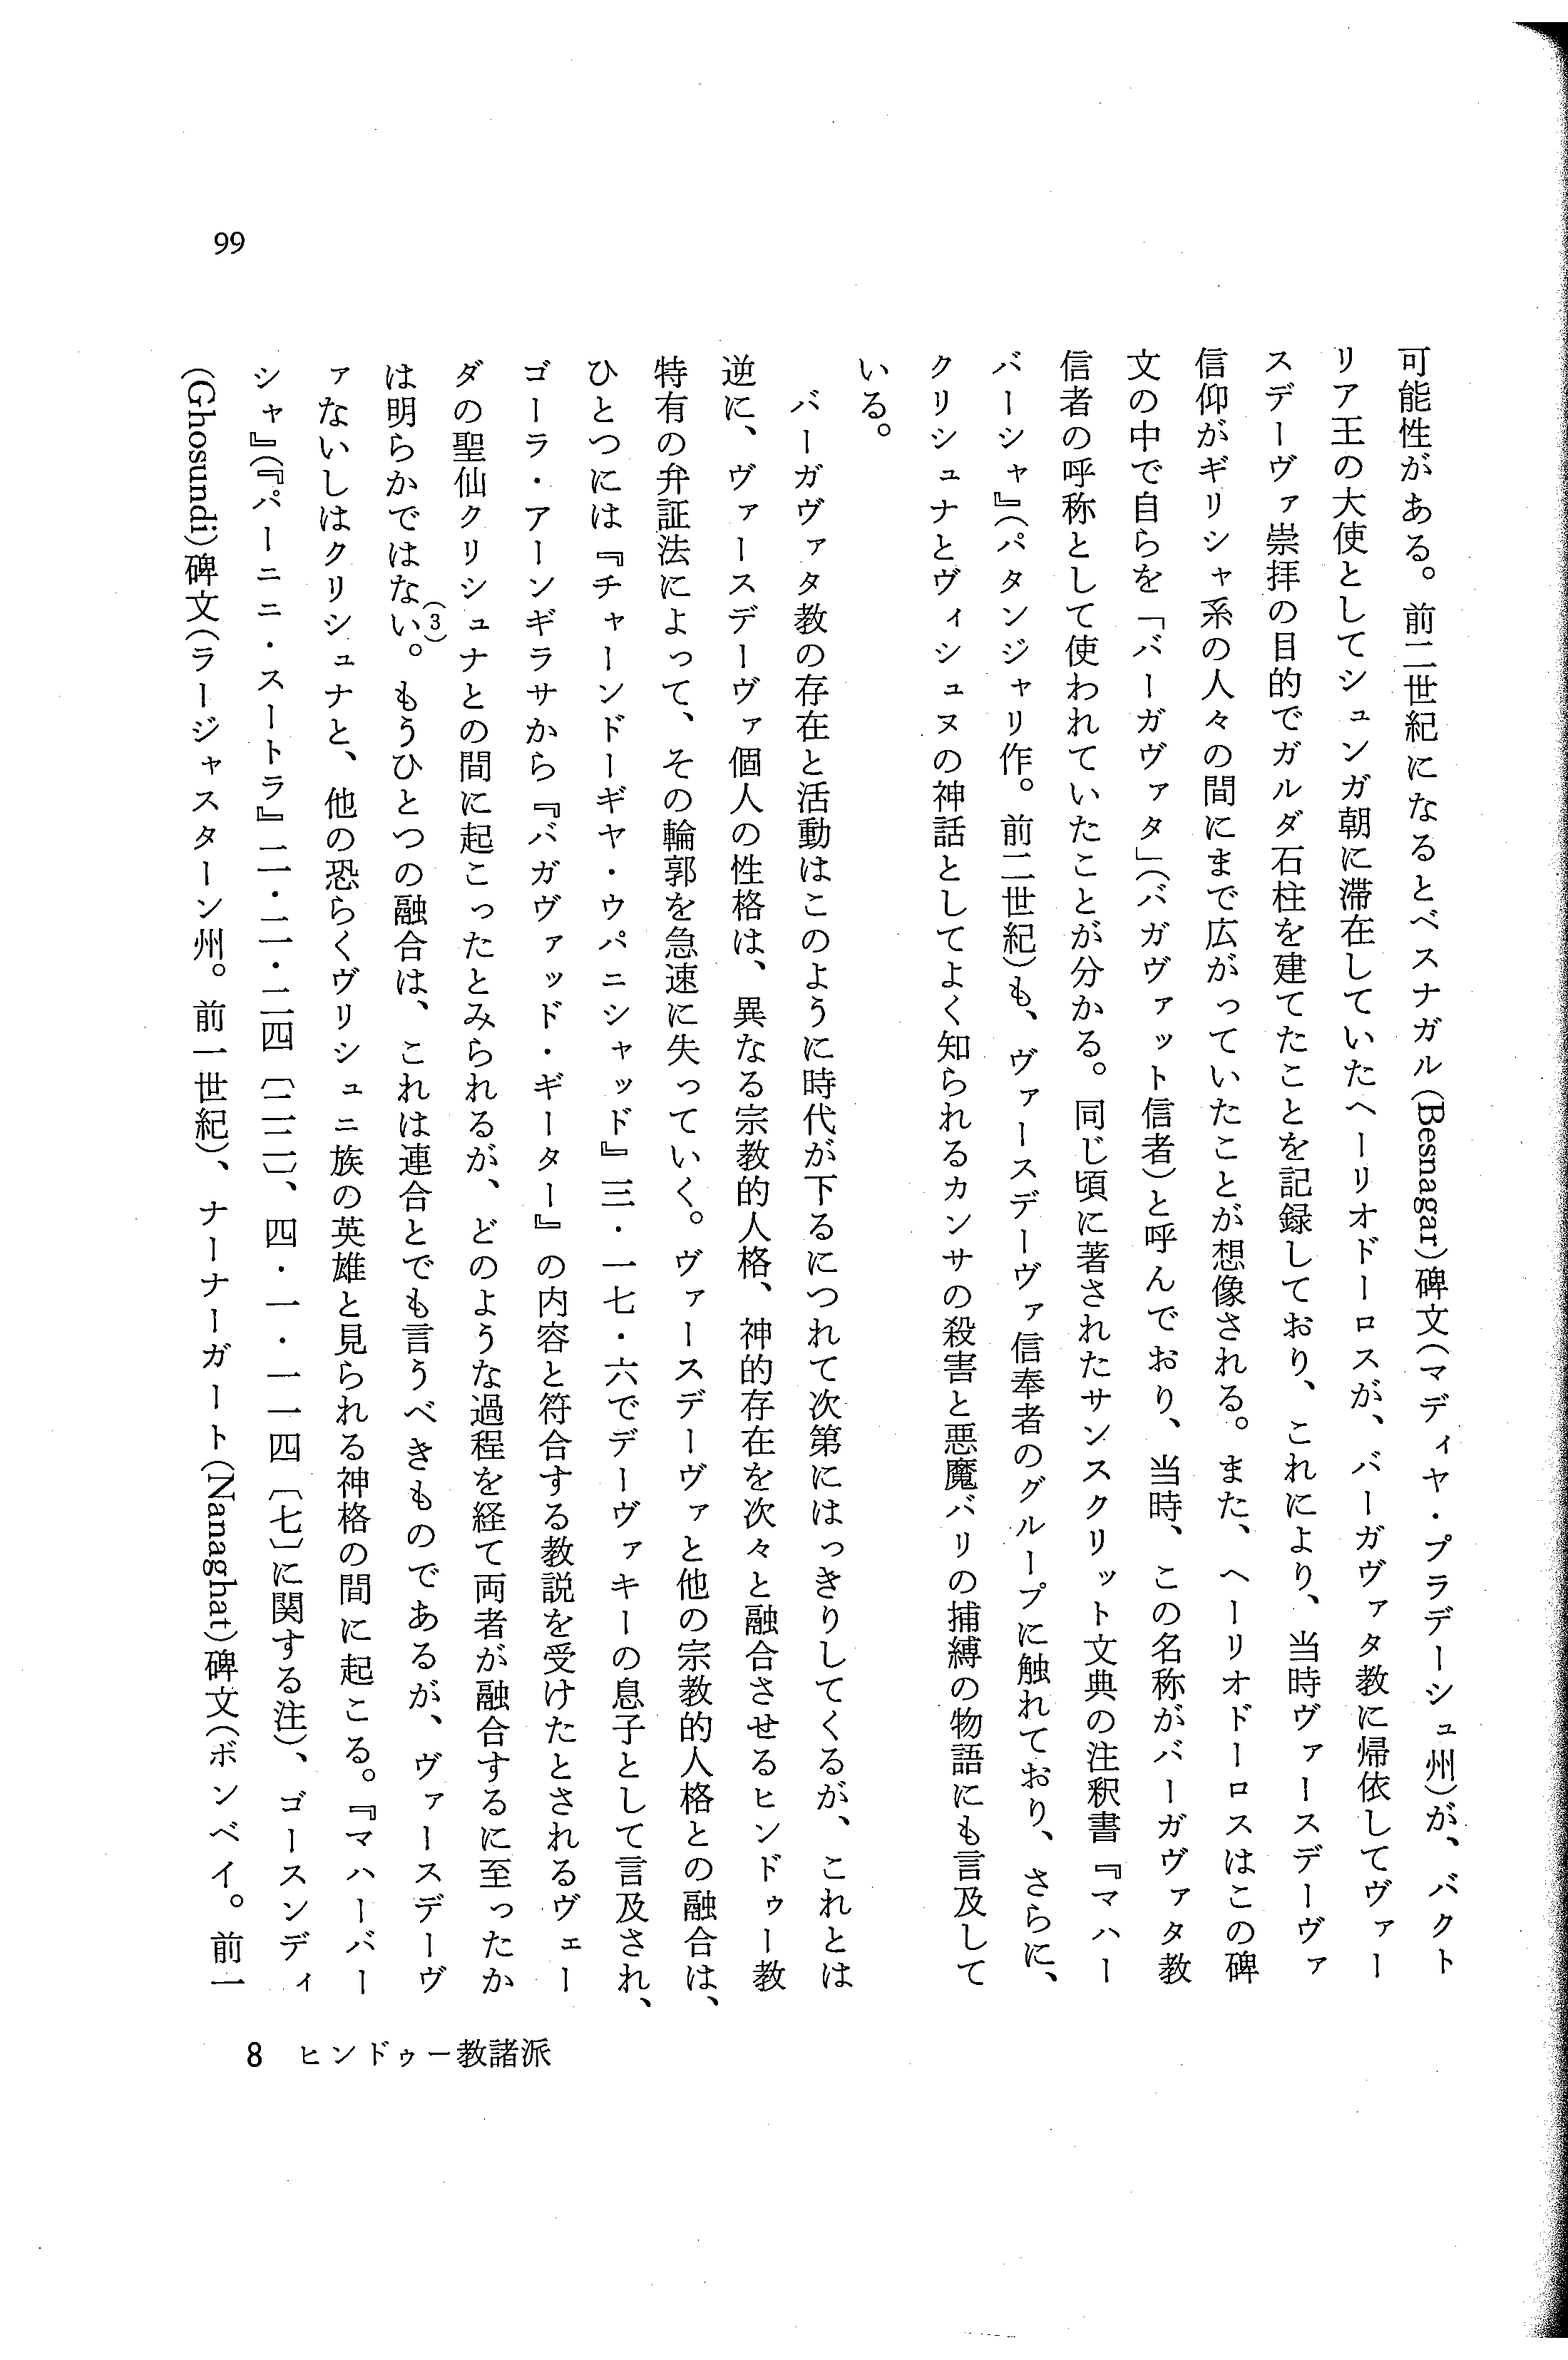 可能性がある。前二世紀になるとベスナガル(Besnagar)碑文(マディヤ・プラデーシュ州)が、バクト
リア王の大使としてシュンガ朝に滞在していたヘーリオドーロスが、バーガヴァタ教に帰依してヴァー
スデーヴァ崇拝の目的でガルダ石柱を建てたことを記録しており、これにより、当時ヴァースデーヴァ
信仰がギリシャ系の人々の間にまで広がっていたことが想像される。また、ヘーリオドーロスはこの碑
文の中で自らを「バーガヴァタ」(バガヴァット信者)と呼んでおり、当時、この名称がバーガヴァタ教
信者の呼称として使われていたことが分かる。同じ頃に著されたサンスクリット文典の注釈書『マハー
バーシャ』(パタンジャリ作。前二世紀)も、ヴァースデーヴァ信奉者のグループに触れており、さらに、
クリシュナとヴィシュヌの神話としてよく知られるカンサの殺害と悪魔バリの捕縛の物語にも言及して
いる。
バーガヴァタ教の存在と活動はこのように時代が下るにつれて次第にはっきりしてくるが、これとは
逆に、ヴァースデーヴァ個人の性格は、異なる宗教的人格、神的存在を次々と融合させるヒンドゥー教
特有の弁証法によって、その輪郭を急速に失っていく。ヴァースデーヴァと他の宗教的人格との融合は、
ひとつには『チャーンドーギヤ・ウパニシャッド』三・一七・六でデーヴァキーの息子として言及され、
ゴーラ・アーンギラサから『バガヴァッド・ギーター』の内容と符合する教説を受けたとされるヴェー
ダの聖仙クリシュナとの間に起こったとみられるが、どのような過程を経て両者が融合するに至ったか
は明らかではない(3)。もうひとつの融合は、これは連合とでも言うべきものであるが、ヴァースデーヴ
ァないしはクリシュナと、他の恐らくヴリシュニ族の英雄と見られる神格の間に起こる。『マハーバー
シャ』(『パーニニ・スートラ』二・二・二四〔二三〕、四・一・一一四〔七〕に関する注)、ゴースンディ
(Ghosundi)碑文(ラージャスターン州。前一世紀)、ナーナーガート(Nanaghat)碑文(ボンベイ。前一
99
8 ヒンドゥー教諸派